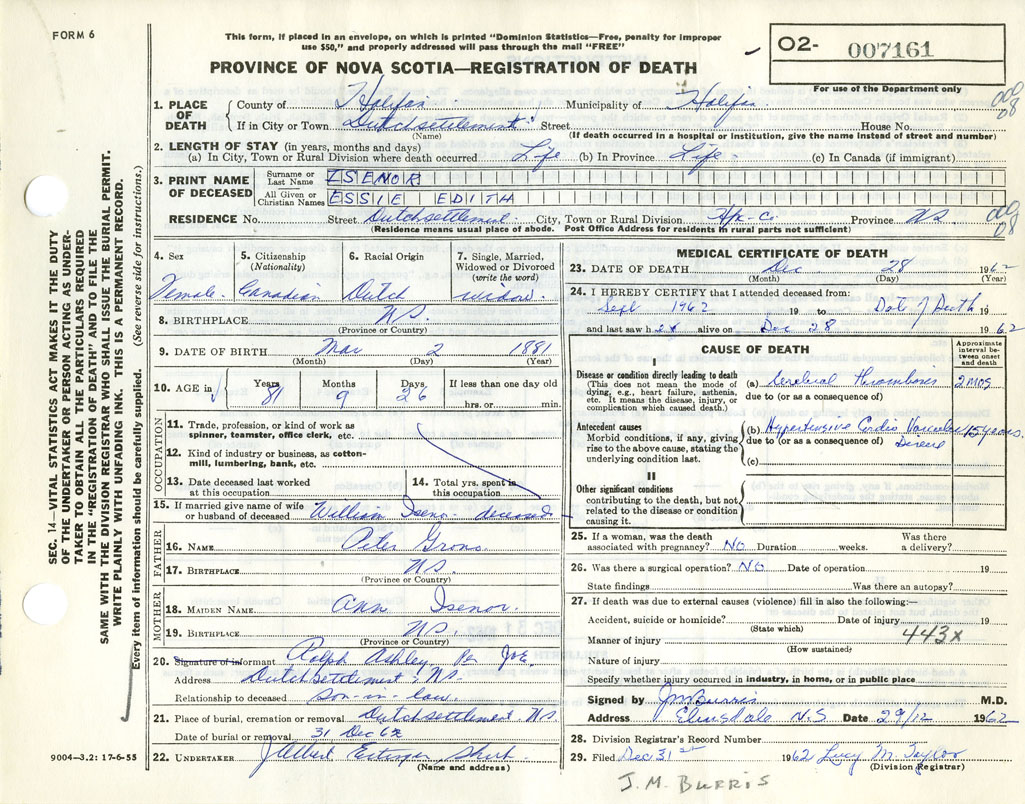 FORM 6
This form, if placed in an envelope, on which is printed "Dominion Statistics—Free, penalty for improper
use $50," and properly addressed will pass through the mail "FREE"
02- 007161
For use of the Department only
PROVINCE OF NOVA SCOTIA—REGISTRATION OF DEATH
1. PLACE OF DEATH County of Halifax Municipality of Halifax
If in City or Town Dutchsettlement Street House No.
(Name) (If death occurred in a hospital or institution, give the name instead of street and number)
000
08
2. LENGTH OF STAY (in years, months and days)
(a) In City, Town or Rural Division where death occurred Life (b) In Province Life (c) In Canada (if immigrant)
3. PRINT NAME OF DECEASED Surname or Last Name ISENOR
All Given or Christian Names ESSIE EDITH
RESIDENCE No. Street Dutchsettlement City, Town or Rural Division Hfx-Co Province NS
(Residence means usual place of abode. Post Office Address for residents in rural parts not sufficient)
000
08
4. Sex 5. Citizenship (Nationality) 6. Racial Origin 7. Single, Married, Widowed or Divorced (write the word)
Female Canadian Dutch widow
8. BIRTHPLACE NS.
(Province or Country)
9. DATE OF BIRTH Mar 2 1881
(Month) (Day) (Year)
10. AGE in Years Months Days If less than one day old
81 9 26 hrs. or min.
OCCUPATION
11. Trade, profession, or kind of work as
spinner, teamster, office clerk, etc.
12. Kind of industry or business, as cotton-
mill, lumbering, bank, etc.
13. Date deceased last worked at this occupation 14. Total yrs. spent in this occupation
15. If married give name of wife or husband of deceased William Isenor deceased
FATHER
16. NAME Peter Grono
17. BIRTHPLACE NS.
(Province or Country)
MOTHER
18. MAIDEN NAME Ann Isenor.
19. BIRTHPLACE NS.
(Province or Country)
20. Signature of informant Ralph Ashley Per JOE.
Address Dutchsettlement, NS.
Relationship to deceased son-in-law.
21. Place of burial, cremation or removal Dutchsettlement NS
Date of burial or removal 31 Dec 62
22. UNDERTAKER J Albert
(Name and address)
MEDICAL CERTIFICATE OF DEATH
23. DATE OF DEATH Dec 28 1962
(Month) (Day) (Year)
24. I HEREBY CERTIFY that I attended deceased from:
Sept 1962 19 to Dat of Death 19
and last saw her alive on Dec 28 1962
CAUSE OF DEATH
Approximate interval between onset and death
I
Disease or condition directly leading to death
(This does not mean the mode of
dying, e.g., heart failure, asthenia,
etc. It means the disease, injury, or
complication which caused death.)
(a) Cerebral Thrombosis 2 mos
due to (or as a consequence of)
Antecedent causes
Morbid conditions, if any, giving
rise to the above cause, stating the
underlying condition last.
(b) Hypertensive Cardio Vascular 15 years.
due to (or as a consequence of) Disease
(c)
II
Other significant conditions
contributing to the death, but not
related to the disease or condition
causing it.
25. If a woman, was the death associated with pregnancy? NO Duration weeks. Was there a delivery?
26. Was there a surgical operation? NO Date of operation 19
State findings Was there an autopsy?
27. If death was due to external causes (violence) fill in also the following:—
Accident, suicide or homicide? Date of injury 19
(State which)
443X
Manner of injury
(How sustained)
Nature of injury
Specify whether injury occurred in industry, in home, or in public place
Signed by JM Burris M.D.
Address Elmsdale N.S. Date 29/12 1962
28. Division Registrar's Record Number
29. Filed Dec 31st 1962 Lucy M. Taylor
(Division Registrar)
J.M. BURRIS
SEC. 14—VITAL STATISTICS ACT MAKES IT THE DUTY
OF THE UNDERTAKER OR PERSON ACTING AS UNDER-
TAKER TO OBTAIN ALL THE PARTICULARS REQUIRED
IN THE "REGISTRATION OF DEATH" AND TO FILE THE
SAME WITH THE DIVISION REGISTRAR WHO SHALL ISSUE THE BURIAL PERMIT.
WRITE PLAINLY WITH UNFADING INK. THIS IS A PERMANENT RECORD.
Every item of information should be carefully supplied. (See reverse side for instructions.)
9004-3.2: 17-6-55